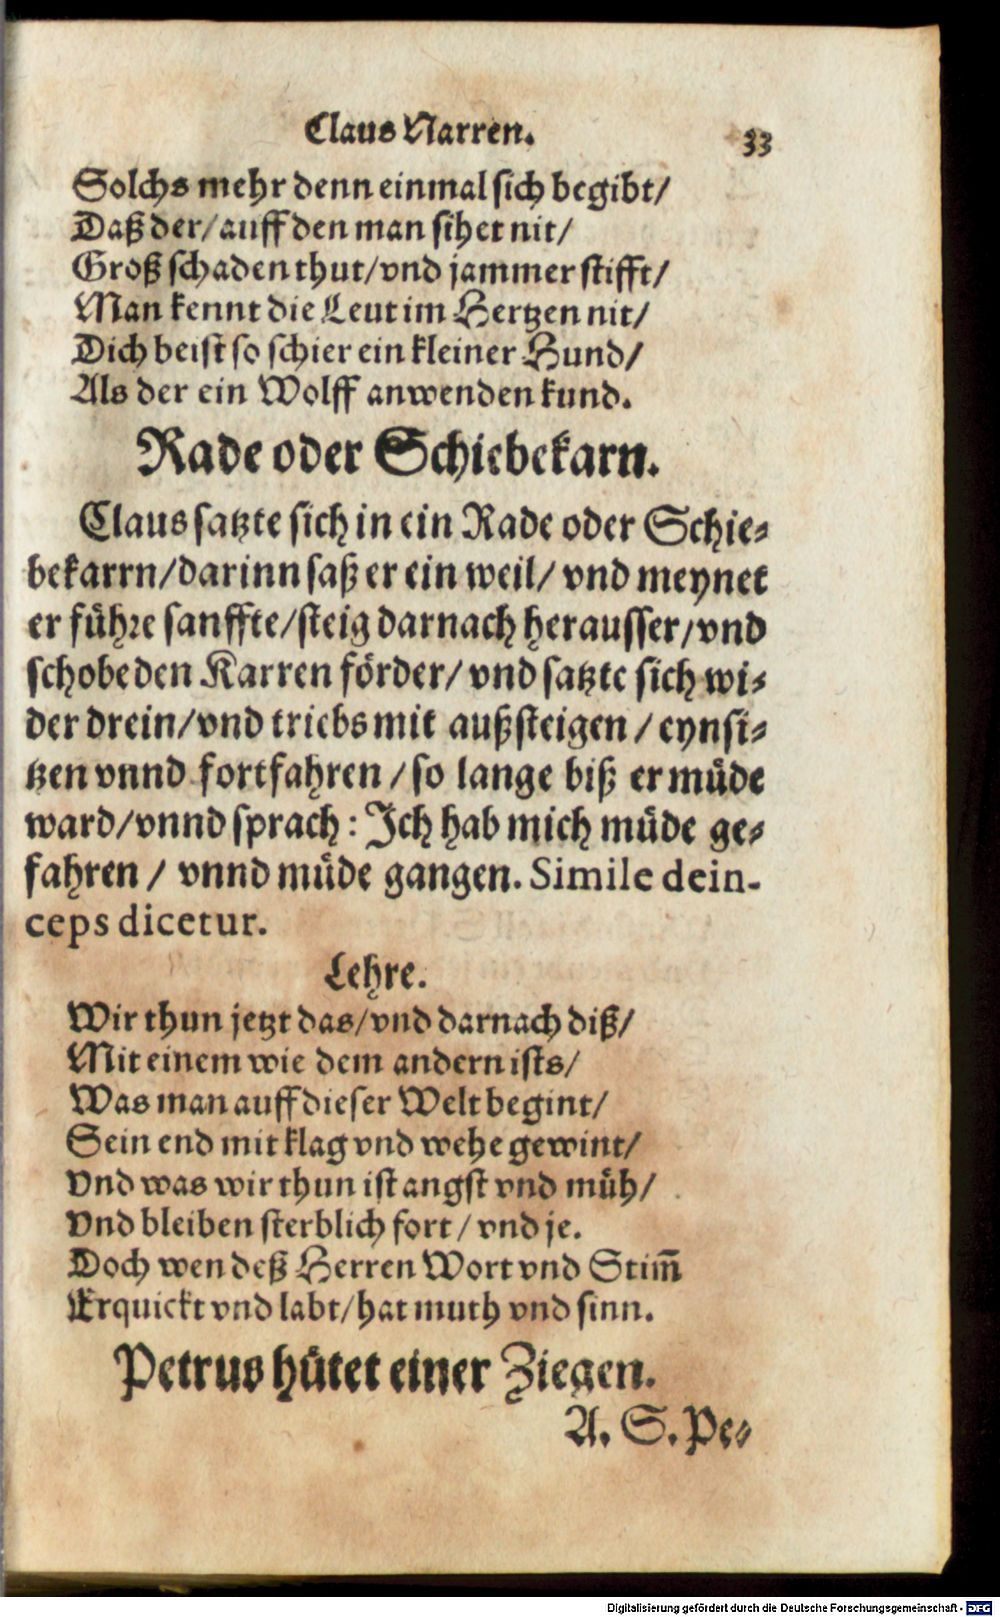 Claus Narren. 33
Solchs mehr denn einmal sich begibt/
Daß der/auff den man sihet nit/
Groß schaden thut/vnd jammer stifft/
Man kennt die Leut im Hertzen nit/
Dich beist so schier ein kleiner Hund/
Als der ein Wolff anwenden kund.
Rade oder Schiebekarn.
Claus satzte sich in ein Rade oder Schie-
bekarrn/darinn saß er ein weil/ vnd meynet
er führe sanffte/steig darnach herausser/vnd
schobe den Karren förder/ vnd satzte sich wi-
der drein/vnd triebs mit außsteigen / eynsi-
tzen vnnd fortfahren / so lange biß er müde
ward/vnnd sprach: Ich hab mich müde ge-
fahren / vnnd müde gangen. Simile dein-
ceps dicetur.
Lehre.
Wir thun jetzt das/vnd darnach diß/
Mit einem wie dem andern ists/
Was man auff dieser Welt begint/
Sein end mit klag vnd wehe gewint/
Vnd was wir thun ist angst vnd müh/
Vnd bleiben sterblich fort / vnd je.
Doch wen deß Herren Wort vnd Stim̃
Erquickt vnd labt/hat muth vnd sinn.
Petrus hütet einer Ziegen.
A. S. Pe-
Digitalisierung gefördert durch die Deutsche Forschungsgemeinschaft - DFG